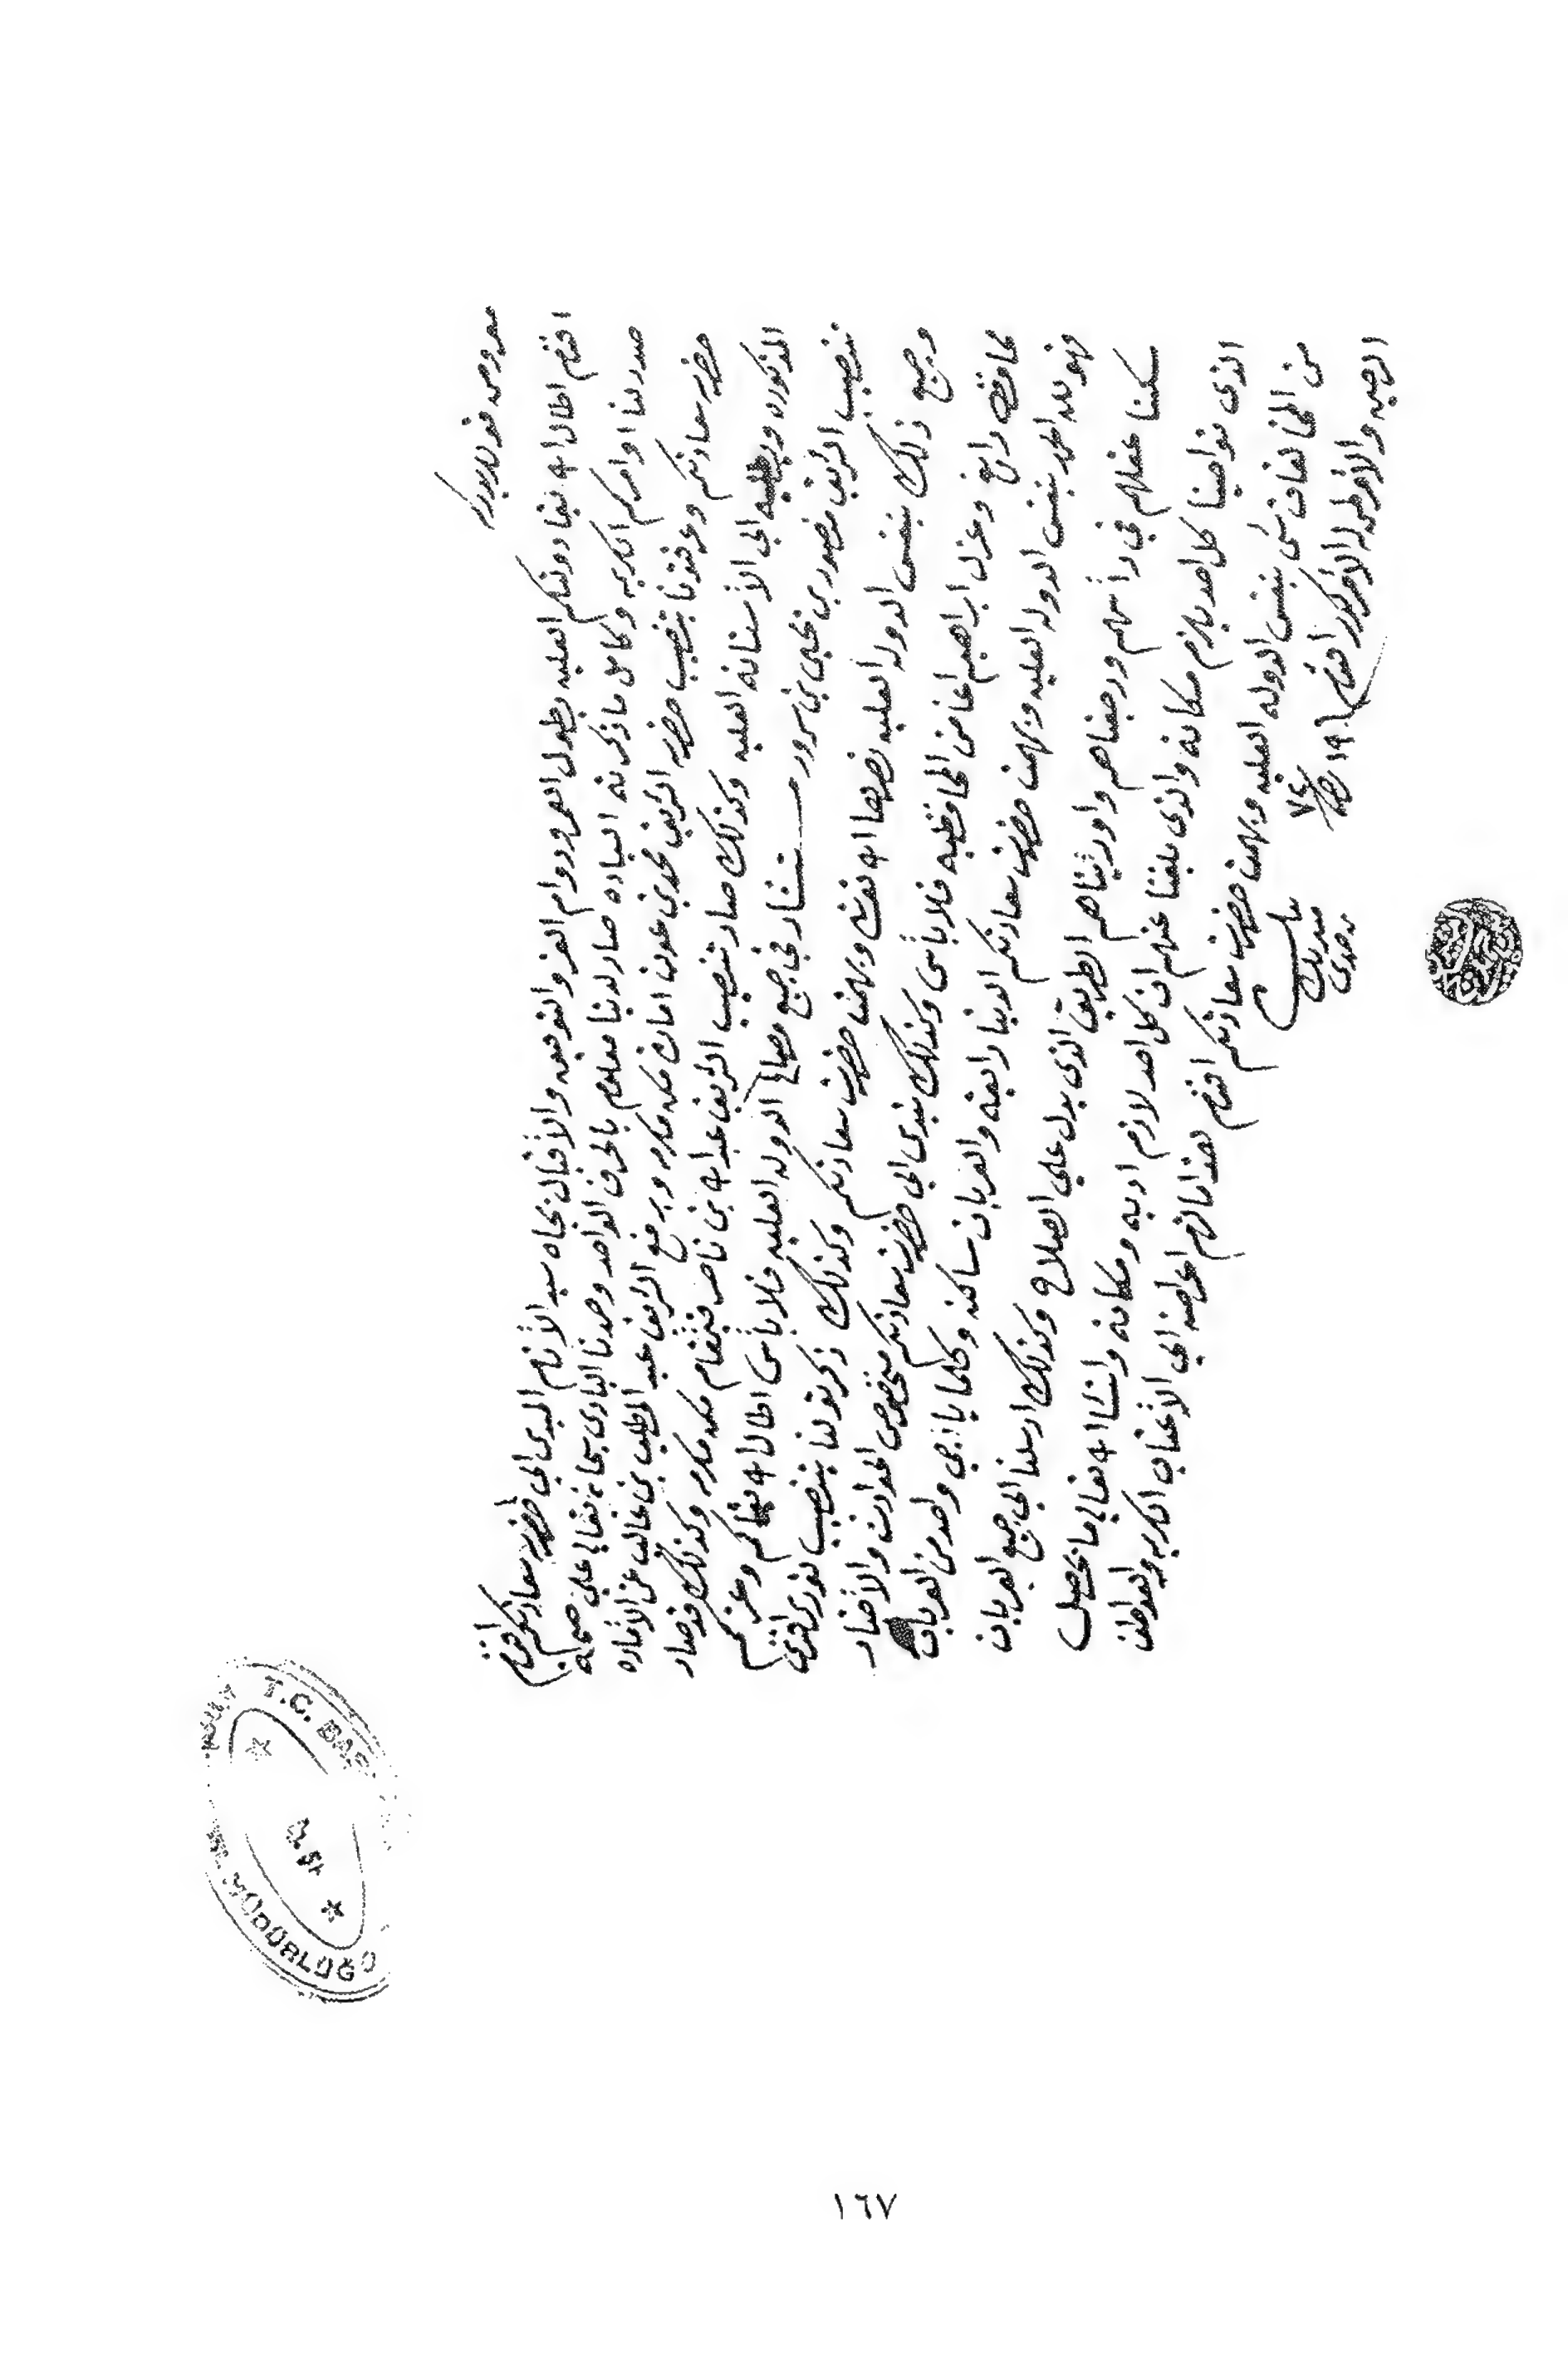 معروض قوللريدركه
افندم اطال الله بقا دولتكم العليه بطول العمر ودوام العز والتوفيق والأقبال بجاه سيد الأنام المبدى الي حضرت سعادتكم افندم
صدر لنا اوامركم الكريمه وكامل ما ذكرته السياده صار لدينا معلوم بالحرف الواحد وحمدنا البارى سبحانه تعالي علي صحة
حضرت سعادتكم وعرفتونا بتنصيب حضرت الشريف محمد بن عون امارة مكه مكرمه ويرفع الشريف عبد المطلب بن غالب عن الأماره
المذكوره ويطلبه الي الأستانه العليه وكذلك صار تنصيب الشريف عبد الله بن ناصر قيمقام مكه مكرمه وكذلك قد صار
تنصيب الشريف منصور بن يحيى بن سرور مستشار في جميع مصالح الدوله العليه فلا بأس اطال الله بقاكم وعزكم
وجميع ذلك بنفس الدوله العليه نصرها الله تعالى وبهمت حضرت سعادتكم وكذلك ذكرتو لنا بتنصيب نورى افندى
محافظ رابغ وعزل ابراهيم اغا من المحافظيه فلا بأس وكذلك نبدى الي حضرت سعادتكم بخصوص الحوادث والأخبار
فهو لله الحمد بنفس الدوله العليه وبهمت حضرت سعادتكم الدنيا رايقه والعربان ساكنه وكلما ياتي واحد من العربان
سكنا عقلهم في رأسهم ورجعناهم واوريناهم الطريق الذى يدل علي الصلاح وكذلك ارسلنا الي جميع العربان
الذى نواحينا كل احد يلزم مكانه والذى بلغنا عنهم ان كل احد لازم ادبه ومكانه وانشا الله تعالي ما يحصل
من المخالفات شى بنفس الدوله العليه وبهمت حضرت سعادتكم افندم لهذا ما لزم اعراضه الي الأعتاب الكريمه والعواطف
الرحيمه والأمر لمن له الأمر كدر افندم ١٩
٧٤
مدير بك
حمدى
T.C. BAŞ
MÜDÜRLÜĞÜ
١٦٧